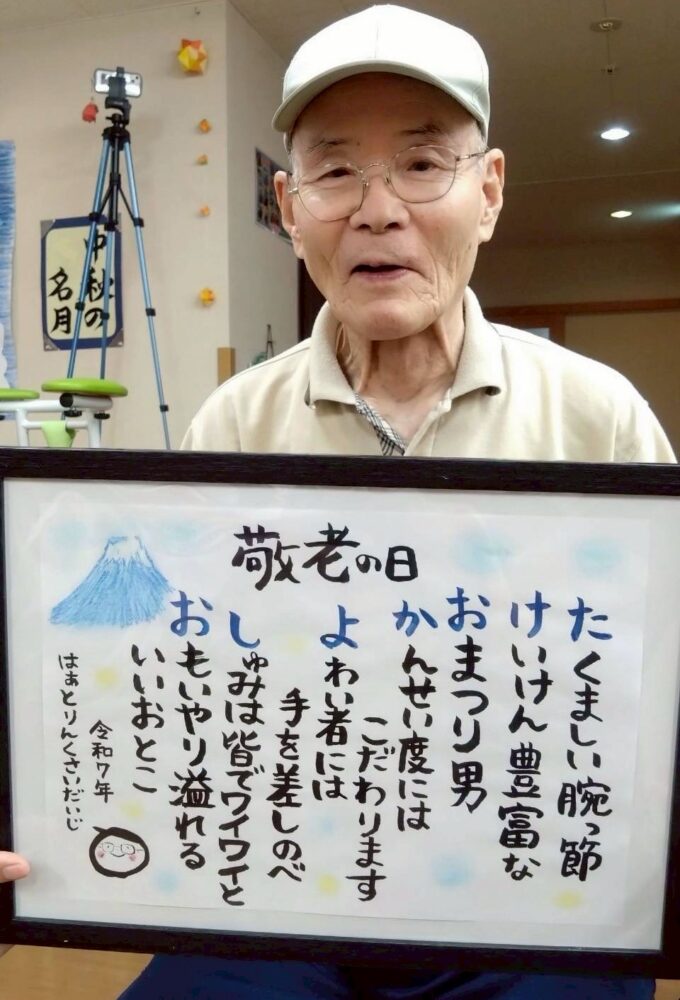 中秋の
名月
敬老の日
たくましい腕っ節
けいけん豊富な
おまつり男
かんせい度には
こだわります
よわい者には
手を差しのべ
しゅみは皆でワイワイと
おもいやり溢れる
いいおとこ
令和7年
はぁとりんくさいだいじ